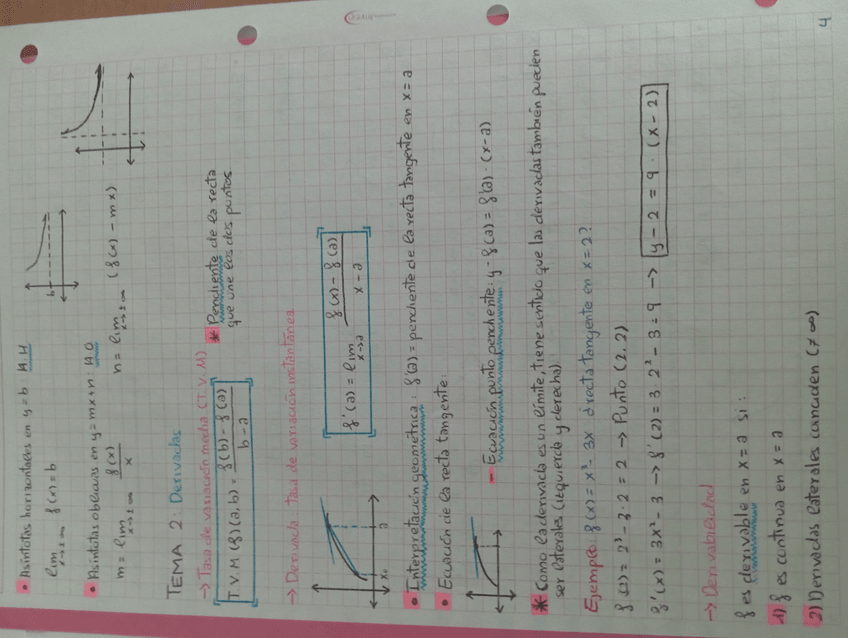 • Asíntotas horizontales en y=b A.H
lim x→±∞ f(x) = b
b
• Asíntotas oblicuas en y=mx+n: A.O
m = lim x→±∞ f(x)/x n = lim x→±∞ (f(x) - mx)
TEMA 2: Derivadas
→ Tasa de variación media (T.V.M)
T.V.M (f)(a,b) = f(b) - f(a) / b - a
* Pendiente de la recta
que une los dos puntos
→ Derivada Tasa de variación instantánea
f'(a) = lim x→a f(x) - f(a) / x - a
x₀ a
• Interpretación geométrica: f'(a) = pendiente de la recta tangente en x=a
• Ecuación de la recta tangente:
- Ecuación punto pendiente: y - f(a) = f'(a) · (x-a)
* Como la derivada es un límite, tiene sentido que las derivadas también pueden
ser laterales (izquierda y derecha)
Ejemplo: f(x) = x³ - 3x ¿recta tangente en x=2?
f(2) = 2³ - 3·2 = 2 → Punto (2,2)
f'(x) = 3x² - 3 → f'(2) = 3·2² - 3 = 9 → y - 2 = 9 · (x - 2)
→ Derivabilidad
f es derivable en x=a si:
1) f es continua en x=a
2) Derivadas laterales coinciden (≠ ∞)
4